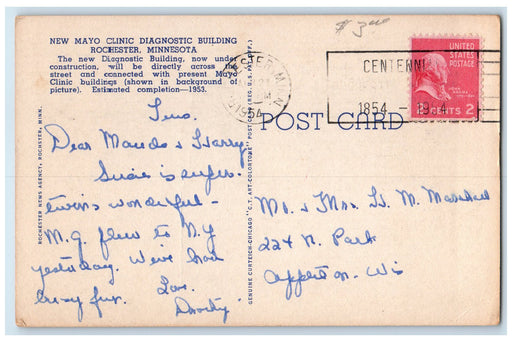 # 300
NEW MAYO CLINIC DIAGNOSTIC BUILDING
ROCHESTER, MINNESOTA
The new Diagnostic Building, now under
construction, will be directly across the
street and connected with present Mayo
Clinic buildings (shown in background of
picture). Estimated completion—1953.
ROCHESTER NEWS AGENCY, ROCHESTER, MINN.
Dear Maude & Harry
Susie is
wonderful —
M.G. flew to N.Y
yesterday. We've had
busy fun.
Love
Dorothy
GENUINE CURTEICH-CHICAGO "C.T. ART-COLORTONE" POST CARD (REG. U.S. PAT. OFF.)
POST CARD
MINN.
1954
CENTENNI
1854 –
UNITED
STATES
POSTAGE
JOHN
ADAMS
CENTS 2
Mr. & Mrs. H. M. Marshall
224 N. Park
Appleton. Wis